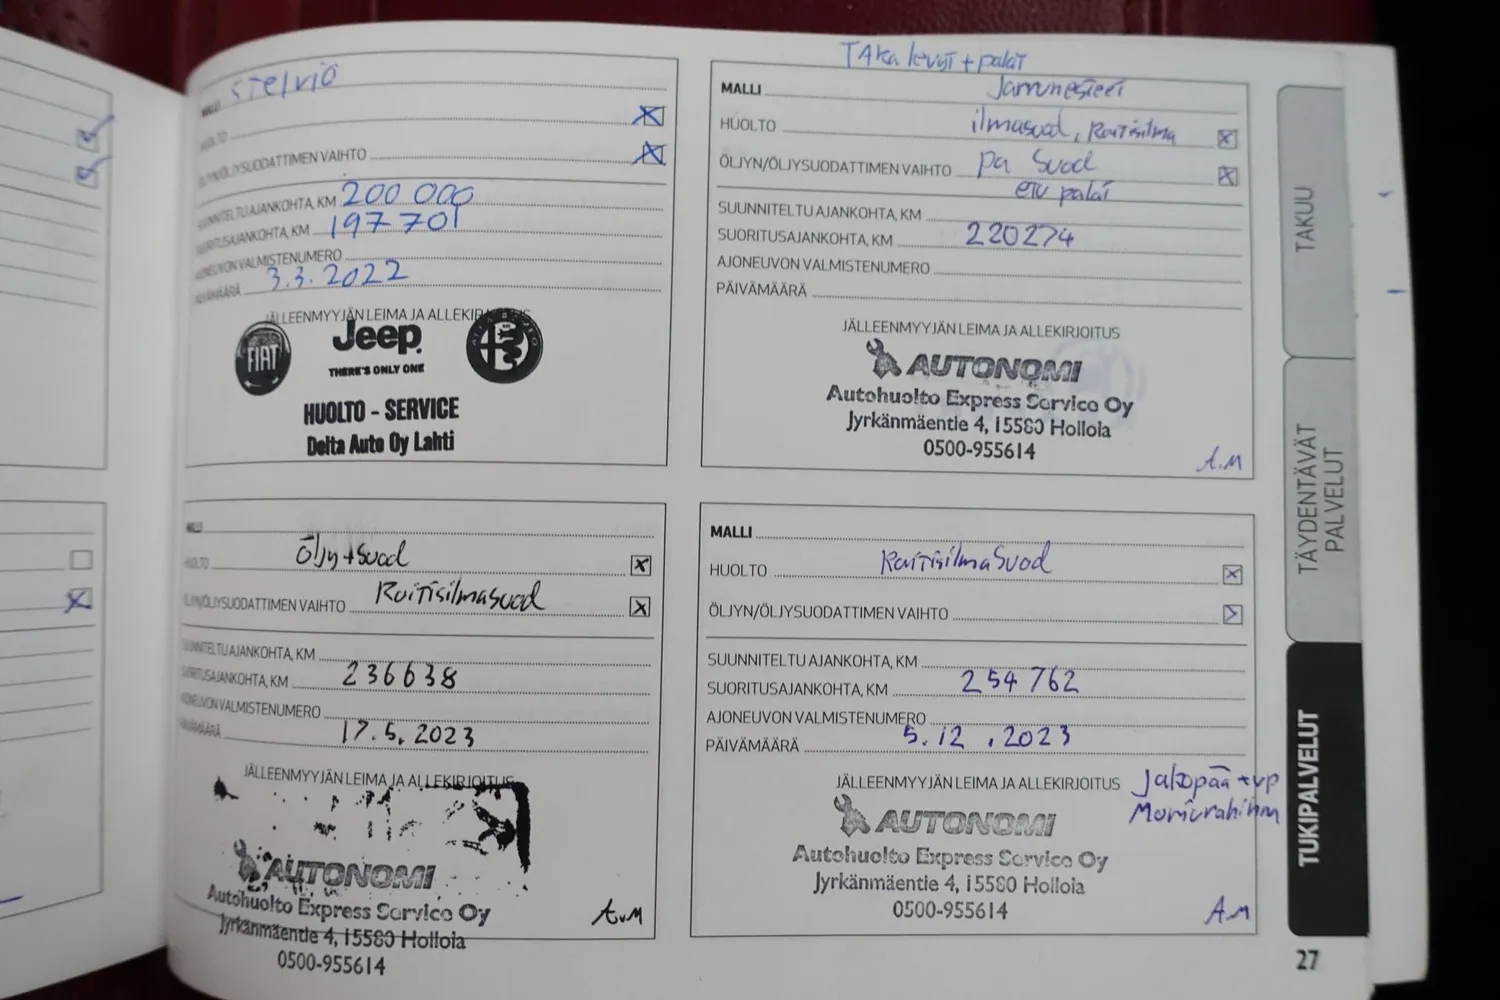 Stelvio
MALLI
HUOLTO
ÖLJYN/ÖLJYSUODATTIMEN VAIHTO
SUUNNITELTU AJANKOHTA, KM 200 000
SUORITUSAJANKOHTA, KM 197 701
AJONEUVON VALMISTENUMERO
PÄIVÄMÄÄRÄ 3.3.2022
JÄLLEENMYYJÄN LEIMA JA ALLEKIRJOITUS
FIAT
Jeep
THERE'S ONLY ONE
HUOLTO - SERVICE
Delta Auto Oy Lahti
TAKa levyt + palat
MALLI Jarrunesteet
HUOLTO ilmasuod, Raitisilma
ÖLJYN/ÖLJYSUODATTIMEN VAIHTO pa Suod
etu palat
SUUNNITELTU AJANKOHTA, KM
SUORITUSAJANKOHTA, KM 220274
AJONEUVON VALMISTENUMERO
PÄIVÄMÄÄRÄ
JÄLLEENMYYJÄN LEIMA JA ALLEKIRJOITUS
AUTONOMI
Autohuolto Express Service Oy
Jyrkänmäentie 4, 15580 Hollola
0500-955614
A.M
MALLI
HUOLTO Öljy + Suod
ÖLJYN/ÖLJYSUODATTIMEN VAIHTO Raitisilmasuod
SUUNNITELTU AJANKOHTA, KM
SUORITUSAJANKOHTA, KM 236638
AJONEUVON VALMISTENUMERO
PÄIVÄMÄÄRÄ 17.5.2023
JÄLLEENMYYJÄN LEIMA JA ALLEKIRJOITUS
AUTONOMI
Autohuolto Express Service Oy
Jyrkänmäentie 4, 15580 Hollola
0500-955614
A.M
MALLI
HUOLTO RaitisilmaSuod
ÖLJYN/ÖLJYSUODATTIMEN VAIHTO
SUUNNITELTU AJANKOHTA, KM
SUORITUSAJANKOHTA, KM 254 762
AJONEUVON VALMISTENUMERO
PÄIVÄMÄÄRÄ 5.12.2023
JÄLLEENMYYJÄN LEIMA JA ALLEKIRJOITUS
Jakopää + vp
AUTONOMI
Autohuolto Express Service Oy
Jyrkänmäentie 4, 15580 Hollola
0500-955614
A.M
TAKUU
TÄYDENTÄVÄT
PALVELUT
TUKIPALVELUT
27